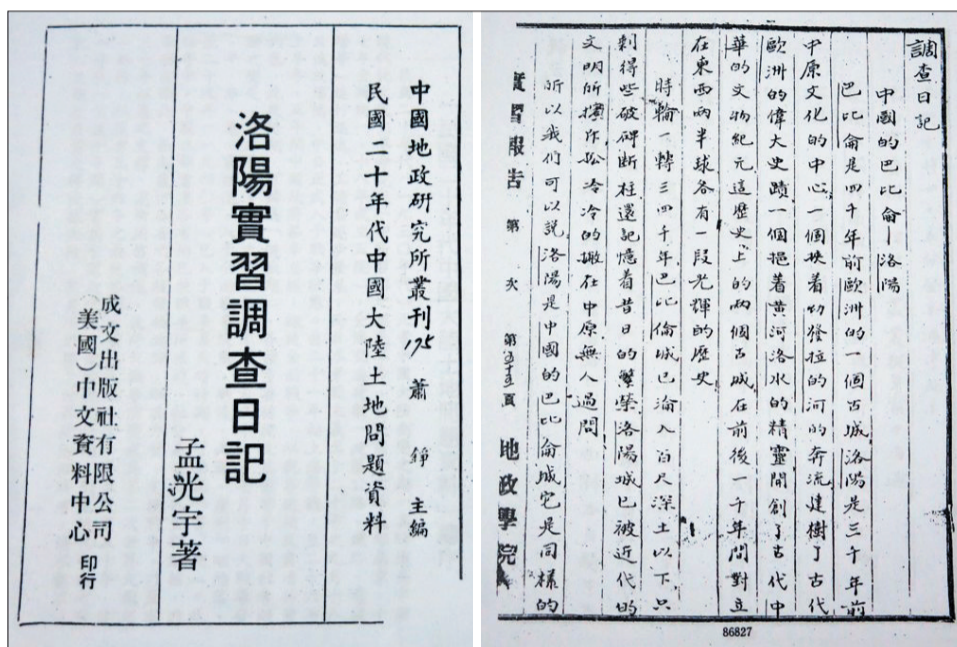 中國地政研究所叢刊175 蕭錚 主編
民國二十年代中國大陸土地問題資料
洛陽實習調查日記
孟光宇著
成文出版社有限公司
(美國)中文資料中心 印行
調查日記
中國的巴比侖—洛陽
巴比侖是四千年前歐洲的一個古城洛陽是三千年前
中原文化的中心一個挾着幼發拉的河的奔流建樹了古代
歐洲的偉大史蹟一個挹著黄河洛水的精靈開創了古代中
華的文物紀元這歷史上的兩個古城在前後一千年間對立
在東西兩半球各有一段光輝的歷史
時輪一轉三四千年巴比倫城已淪入百尺深土以下只
剩得些破碑断柱還記憶着昔日的繁榮洛陽城已被近代的
文明所擯斥冷冷的撇在中原無人過問
所以我们可以説洛陽是中國的巴比侖城它是同樣的
實習報告 第 次 第 頁 地政學院
86827